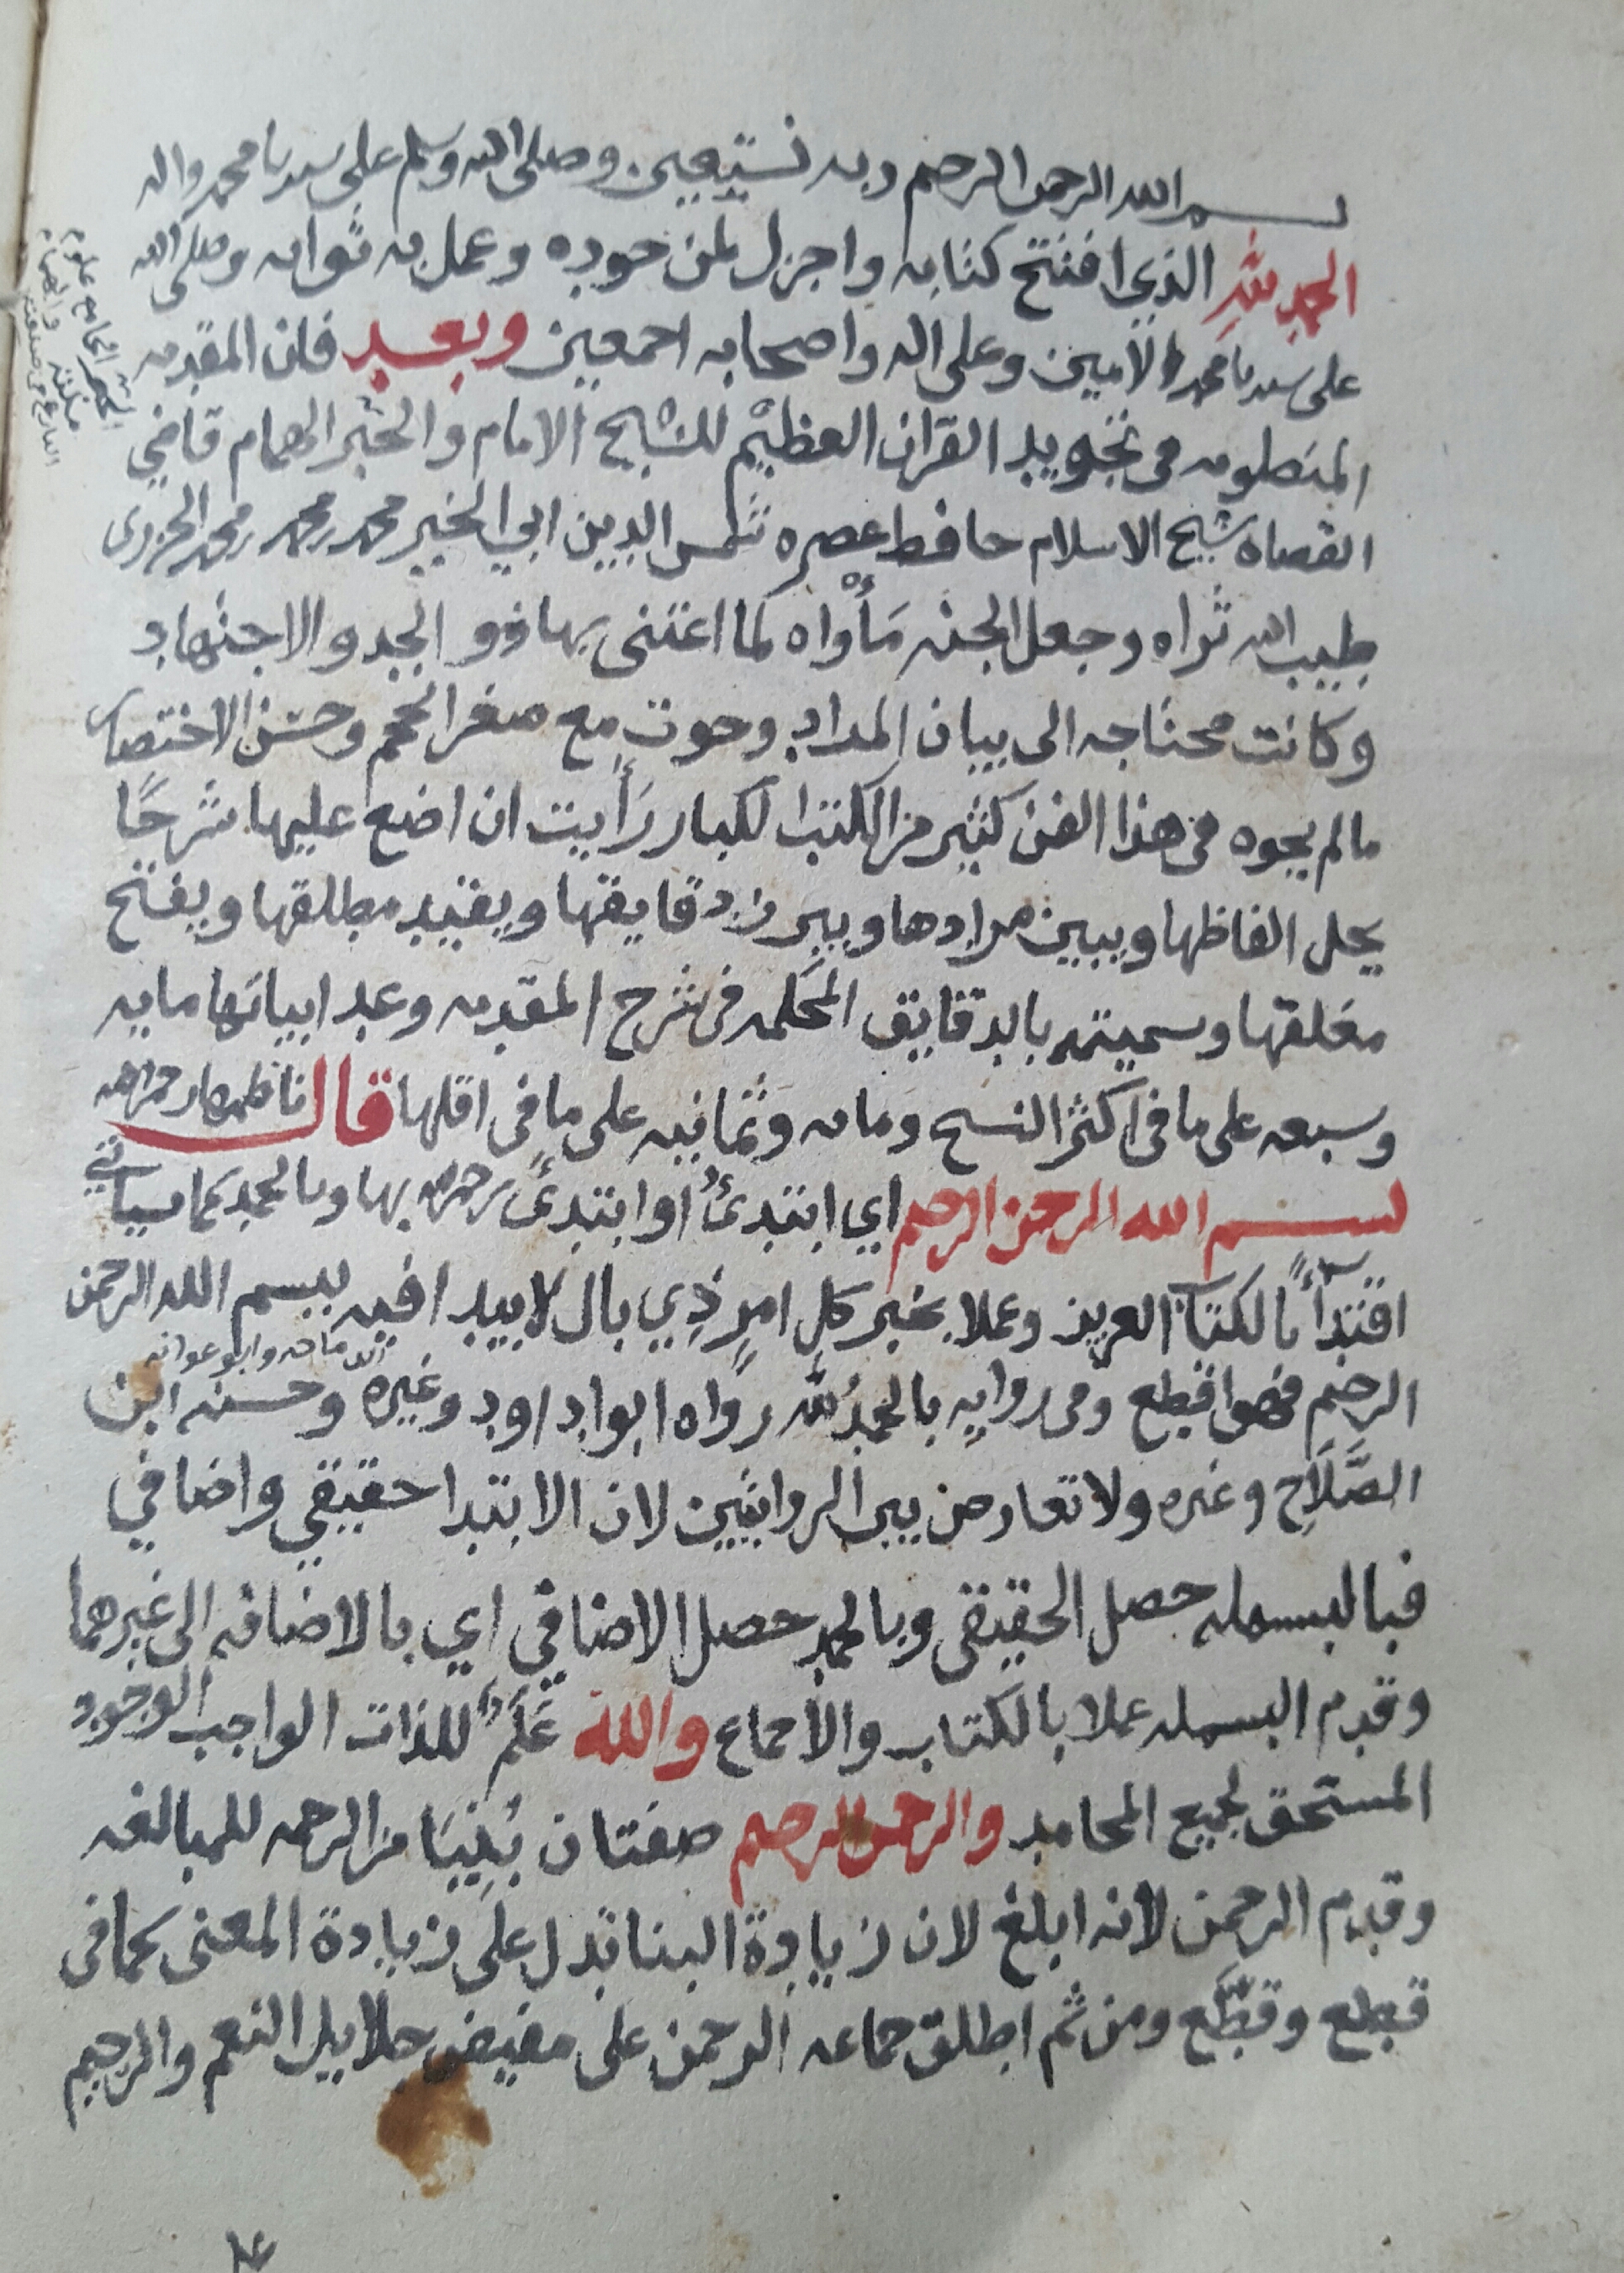 بسم الله الرحمن الرحيم وبه نستعين وصلى الله وسلم على سيدنا محمد واله
الحمد لله الذي افتتح كتابه واجزل لمن جوده وعمل به ثوابه وصلى الله
على سيدنا محمد الامين وعلى اله واصحابه اجمعين وبعد فان المقدمه
المنظومه في تجويد القران العظيم للشيخ الامام والحبر الهمام قاضي
القضاه شيخ الاسلام حافظ عصره شمس الدين ابي الخير محمد بن محمد بن محمد الجزري
طيب الله ثراه وجعل الجنه مأواه لما اعتنى بها ذوو الجد والاجتهاد
وكانت محتاجه الى بيان المراد وحوت مع صغر الحجم وحسن الاختصار
مالم يحوه في هذا الفن كثير من الكتب الكبار رأيت ان اضع عليها شرحًا
يحل الفاظها ويبين مرادها ويبرز دقايقها ويقيد مطلقها ويفتح
مغلقها وسميته بالدقايق المحكمه في شرح المقدمه وعد ابياتها مايه
وسبعه على ما في اكثر النسخ ومايه وثمانيه على ما في اقلها قال ناظمها رحمه الله
بسم الله الرحمن الرحيم اي ابتدئُ او ابتدئ نرجزه بها وبالحمد كما سياتي
اقتدأً بالكتاب العزيز وعملا بخبر كل امرٍ ذي بال لا يبدا فيه ببسم الله الرحمن
الرحيم فهو اقطع وفي روايه بالحمد لله رواه ابوا داود وغيره وحسنه ابن
ابن ماجه وابو عوانه
الصَّلَاحِ وغيره ولا تعارض بين الروايتين لان الابتدا حقيقي واضافي
فبالبسمله حصل الحقيقي وبالحمد حصل الاضافي اي بالاضافه الى غيرهما
وقدم البسمله عملا بالكتاب والاجماع والله عَلَمٌ للذات الواجب الوجود
المستحق لجميع المحامد والرحمن الرحيم صفتان بُنِيَتا من الرحمه للمبالغه
وقدم الرحمن لانه ابلغ لان زيادة البنا تدل على زيادة المعنى كما في
قطع وقطّع ومن ثم اطلق جماعه الرحمن على مفيض جلايل النعم والرحيم